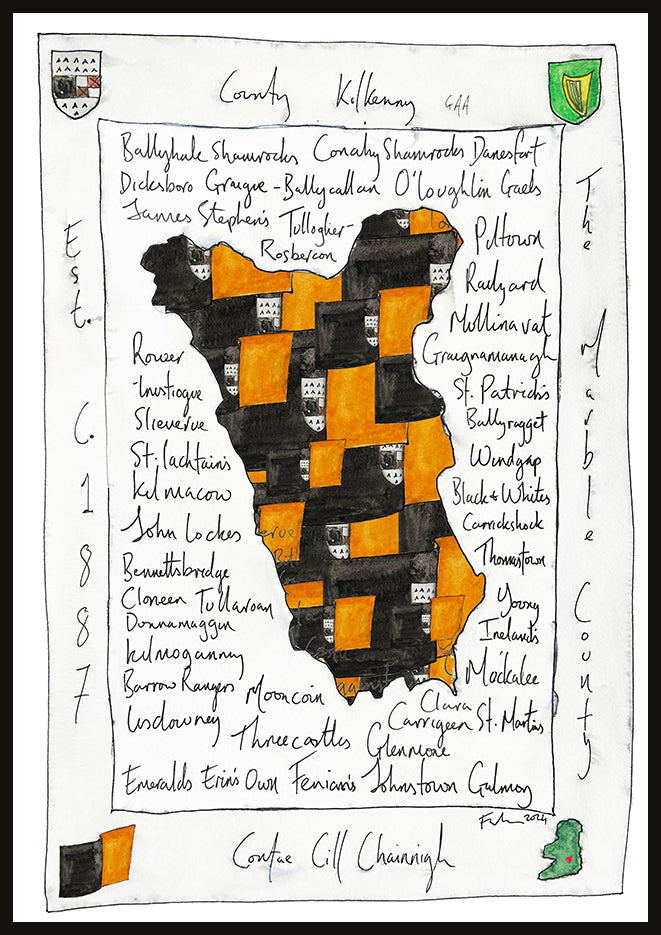 County Kilkenny GAA
Ballyhale Shamrocks Conahy Shamrocks Danesfort
Dicksboro Graigue-Ballycallan O'loughlin Gaels
James Stephen's Tulloghier-
Rosbercon
Piltown
Railyard
Mullinavat
Graignamanagh
St. Patrick's
Ballyragget
Windgap
Black & Whites
Carrickshock
Thomastown
Young
Irelands
Muckalee
Rower
-Inistioque
Slieverue
St. lachtain's
Kilmacow
John Lockes
Bennettsbridge
Cloneen Tullaroan
Dunnamaggin
Kilmoganny
Barrow Rangers Mooncoin
Lisdowney Threecastles Glenmore
Clara
Carrigeen St. Martins
Emeralds Erin's Own Fenian's Johnstown Galmoy
2024
Est. C. 1887
The Marble County
Contae Cill Chainnigh